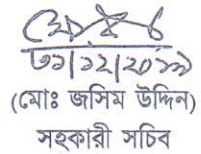 ৩১/১২/২০১৯
(মোঃ জসিম উদ্দিন)
সহকারী সচিব